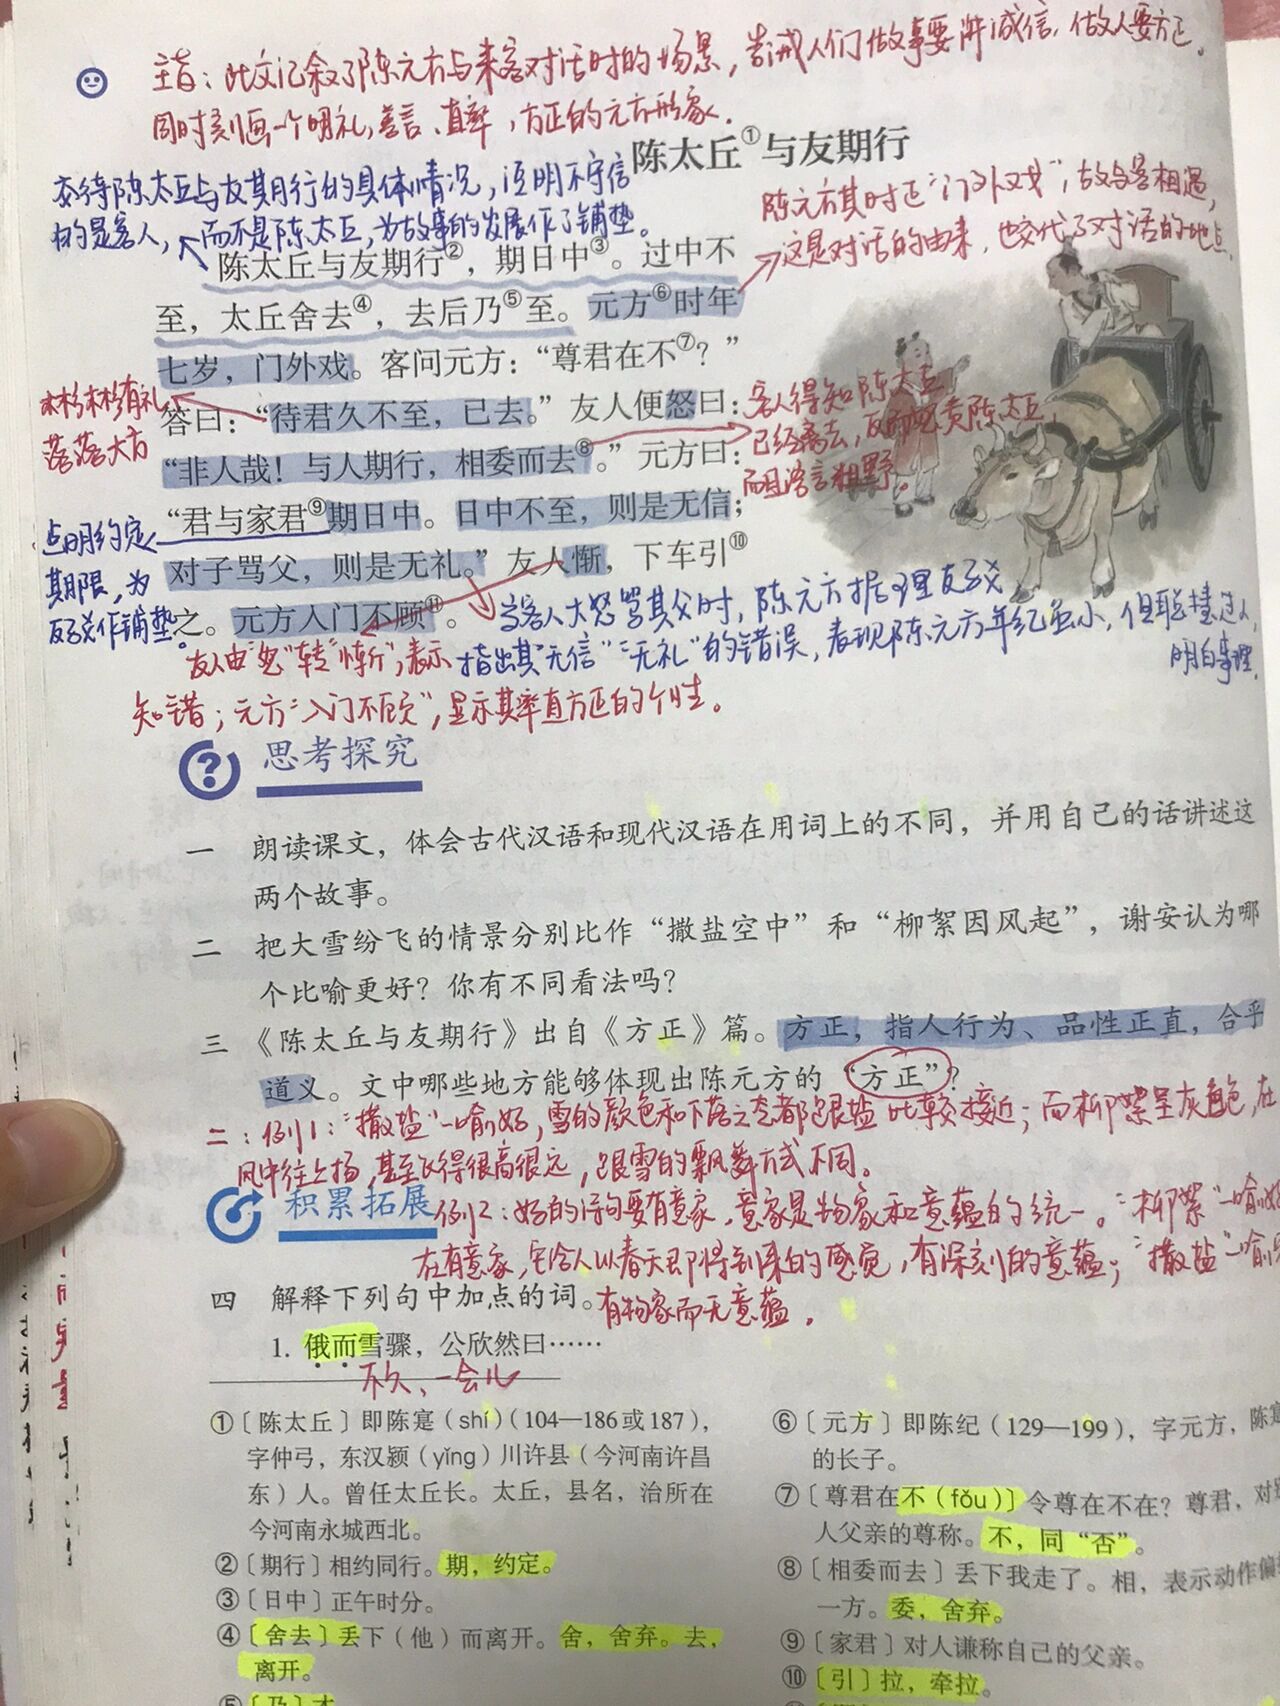 主旨：此文记叙了陈元方与来客对话时的场景，告诫人们做事要讲诚信，做人要方正。
同时刻画一个明礼，善言、直率，方正的元方形象．
陈太丘①与友期行
交待陈太丘与友其月行的具体情况，证明不守信
的是客人，而不是陈太丘，为故事的发展作了铺垫。
陈元方其时正“门外戏”，故与客相遇，
这是对话的由来，也交代了对话的地点．
陈太丘与友期行②，期日中③。过中不
至，太丘舍去④，去后乃⑤至。元方⑥时年
七岁，门外戏。客问元方：“尊君在不⑦？”
答曰：“待君久不至，已去。”友人便怒曰：
“非人哉！与人期行，相委而去⑧。”元方曰：
“君与家君⑨期日中。日中不至，则是无信；
对子骂父，则是无礼。”友人惭，下车引⑩
之。元方入门不顾⑪。
彬彬有礼
落落大方
客人得知陈太丘
已经离去，反而怒责陈太丘，
而且语言粗野。
点明约定
期限，为
反驳作铺垫。
当客人大怒骂其父时，陈元方据理反驳
指出其“无信”“无礼”的错误，表现陈元方年纪虽小，但聪慧过人，
明白事理．
友人由“怒”转“惭”，表示
知错；元方“入门不顾”，显示其率直方正的个性。
思考探究
一 朗读课文，体会古代汉语和现代汉语在用词上的不同，并用自己的话讲述这
两个故事。
二 把大雪纷飞的情景分别比作“撒盐空中”和“柳絮因风起”，谢安认为哪
个比喻更好？你有不同看法吗？
三 《陈太丘与友期行》出自《方正》篇。方正，指人行为、品性正直，合乎
道义。文中哪些地方能够体现出陈元方的“方正”？
二：例1：“撒盐”一喻好，雪的颜色和下落之态都跟盐比较接近；而柳絮呈灰白色，在
风中往上扬，甚至飞得很高很远，跟雪的飘舞方式不同。
积累拓展
例2：好的诗句要有意象，意象是物象和意蕴的统一。“柳絮”一喻好
在有意象，它给人以春天即将到来的感觉，有深刻的意蕴；“撒盐”一喻
有物象而无意蕴．
四 解释下列句中加点的词。
1. 俄而雪骤，公欣然曰……
不久、一会儿
①〔陈太丘〕即陈寔（shí）（104—186或187），
字仲弓，东汉颍（yǐng）川许县（今河南许昌
东）人。曾任太丘长。太丘，县名，治所在
今河南永城西北。
②〔期行〕相约同行。期，约定。
③〔日中〕正午时分。
④〔舍去〕丢下（他）而离开。舍，舍弃。去，
离开。
⑤〔乃〕才
⑥〔元方〕即陈纪（129—199），字元方，陈寔
的长子。
⑦〔尊君在不（fǒu）〕令尊在不在？尊君，对别
人父亲的尊称。不，同“否”。
⑧〔相委而去〕丢下我走了。相，表示动作偏
一方。委，舍弃。
⑨〔家君〕对人谦称自己的父亲。
⑩〔引〕拉，牵拉。